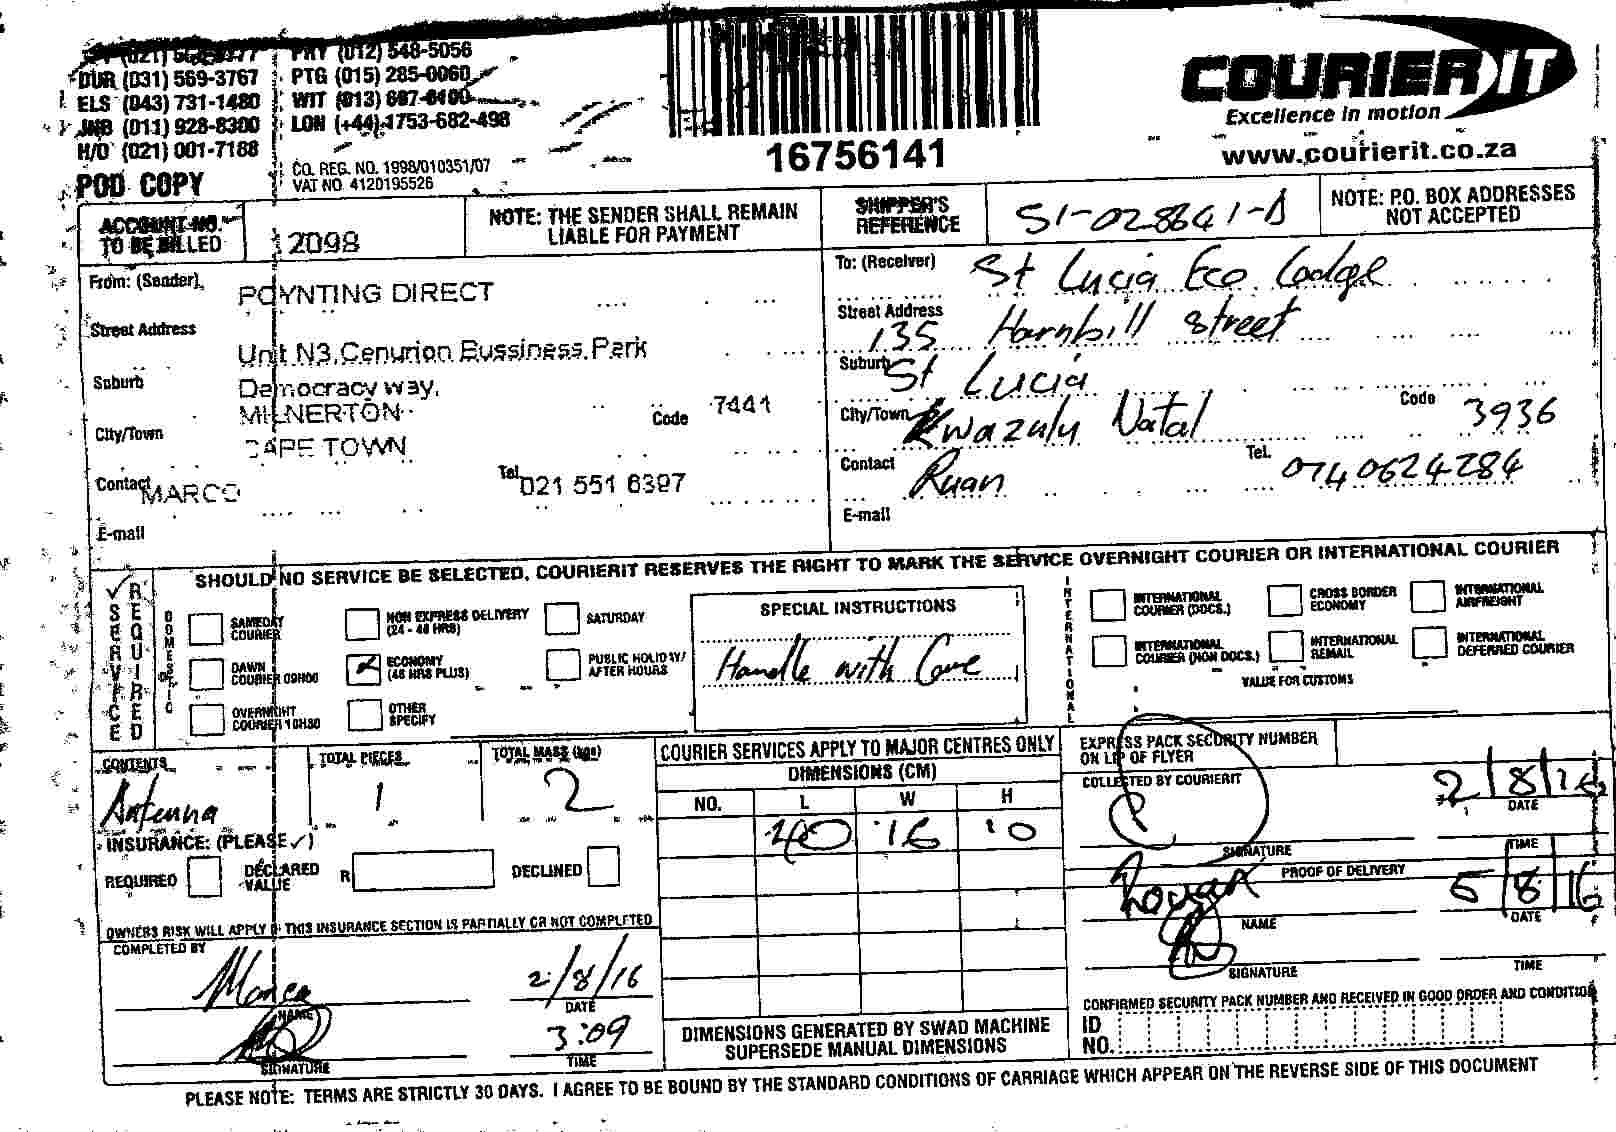 DUR (031) 569-3767
ELS (043) 731-1480
JNB (011) 928-8300
H/O (021) 001-7188
PRY (012) 548-5056
PTG (015) 285-0060
WIT (013) 697-6100
LON (+44) 1753-682-498
CO. REG. NO. 1998/010351/07
VAT NO. 4120195526
POD COPY
16756141
COURIER IT
Excellence in motion
www.courierit.co.za
ACCOUNT NO.
TO BE BILLED
12098
NOTE: THE SENDER SHALL REMAIN
LIABLE FOR PAYMENT
SHIPPER'S
REFERENCE
SI-028641-A
NOTE: P.O. BOX ADDRESSES
NOT ACCEPTED
From: (Sender)
POYNTING DIRECT
Street Address
Unit N3, Cenurion Bussiness Park
Suburb
Democracy way,
MILNERTON
Code 7441
City/Town
CAPE TOWN
Contact MARCO
Tel 021 551 6397
E-mail
To: (Receiver) St Lucia Eco Lodge
Street Address
135 Hornbill Street
Suburb St Lucia
City/Town Kwazulu Natal
Code 3936
Contact Ruan
Tel. 0740624284
E-mail
SHOULD NO SERVICE BE SELECTED, COURIERIT RESERVES THE RIGHT TO MARK THE SERVICE OVERNIGHT COURIER OR INTERNATIONAL COURIER
SERVICE
REQUIRED
DOMESTIC
SAMEDAY
COURIER
DAWN
COURIER 09H00
OVERNIGHT
COURIER 10H30
NON EXPRESS DELIVERY
(24 - 48 HRS)
ECONOMY
(48 HRS PLUS)
OTHER
SPECIFY
SATURDAY
PUBLIC HOLIDAY/
AFTER HOURS
SPECIAL INSTRUCTIONS
Handle with Care
INTERNATIONAL
INTERNATIONAL
COURIER (DOCS.)
INTERNATIONAL
COURIER (NON DOCS.)
CROSS BORDER
ECONOMY
INTERNATIONAL
REMAIL
INTERNATIONAL
AIRFREIGHT
INTERNATIONAL
DEFERRED COURIER
VALUE FOR CUSTOMS
CONTENTS
Antenna
TOTAL PIECES
1
TOTAL MASS (kgs)
2
INSURANCE: (PLEASE ✓)
REQUIRED
DECLARED
VALUE
R
DECLINED
OWNERS RISK WILL APPLY IF THIS INSURANCE SECTION IS PARTIALLY OR NOT COMPLETED
COMPLETED BY
NAME
2/8/16
DATE
SIGNATURE
3:09
TIME
COURIER SERVICES APPLY TO MAJOR CENTRES ONLY
DIMENSIONS (CM)
NO. L W H
40 16 10
DIMENSIONS GENERATED BY SWAD MACHINE
SUPERSEDE MANUAL DIMENSIONS
EXPRESS PACK SECURITY NUMBER
ON LIP OF FLYER
COLLECTED BY COURIERIT
2/8/16
DATE
SIGNATURE
TIME
PROOF OF DELIVERY
5/8/16
NAME
DATE
SIGNATURE
TIME
CONFIRMED SECURITY PACK NUMBER AND RECEIVED IN GOOD ORDER AND CONDITION
ID
NO.
PLEASE NOTE: TERMS ARE STRICTLY 30 DAYS. I AGREE TO BE BOUND BY THE STANDARD CONDITIONS OF CARRIAGE WHICH APPEAR ON THE REVERSE SIDE OF THIS DOCUMENT